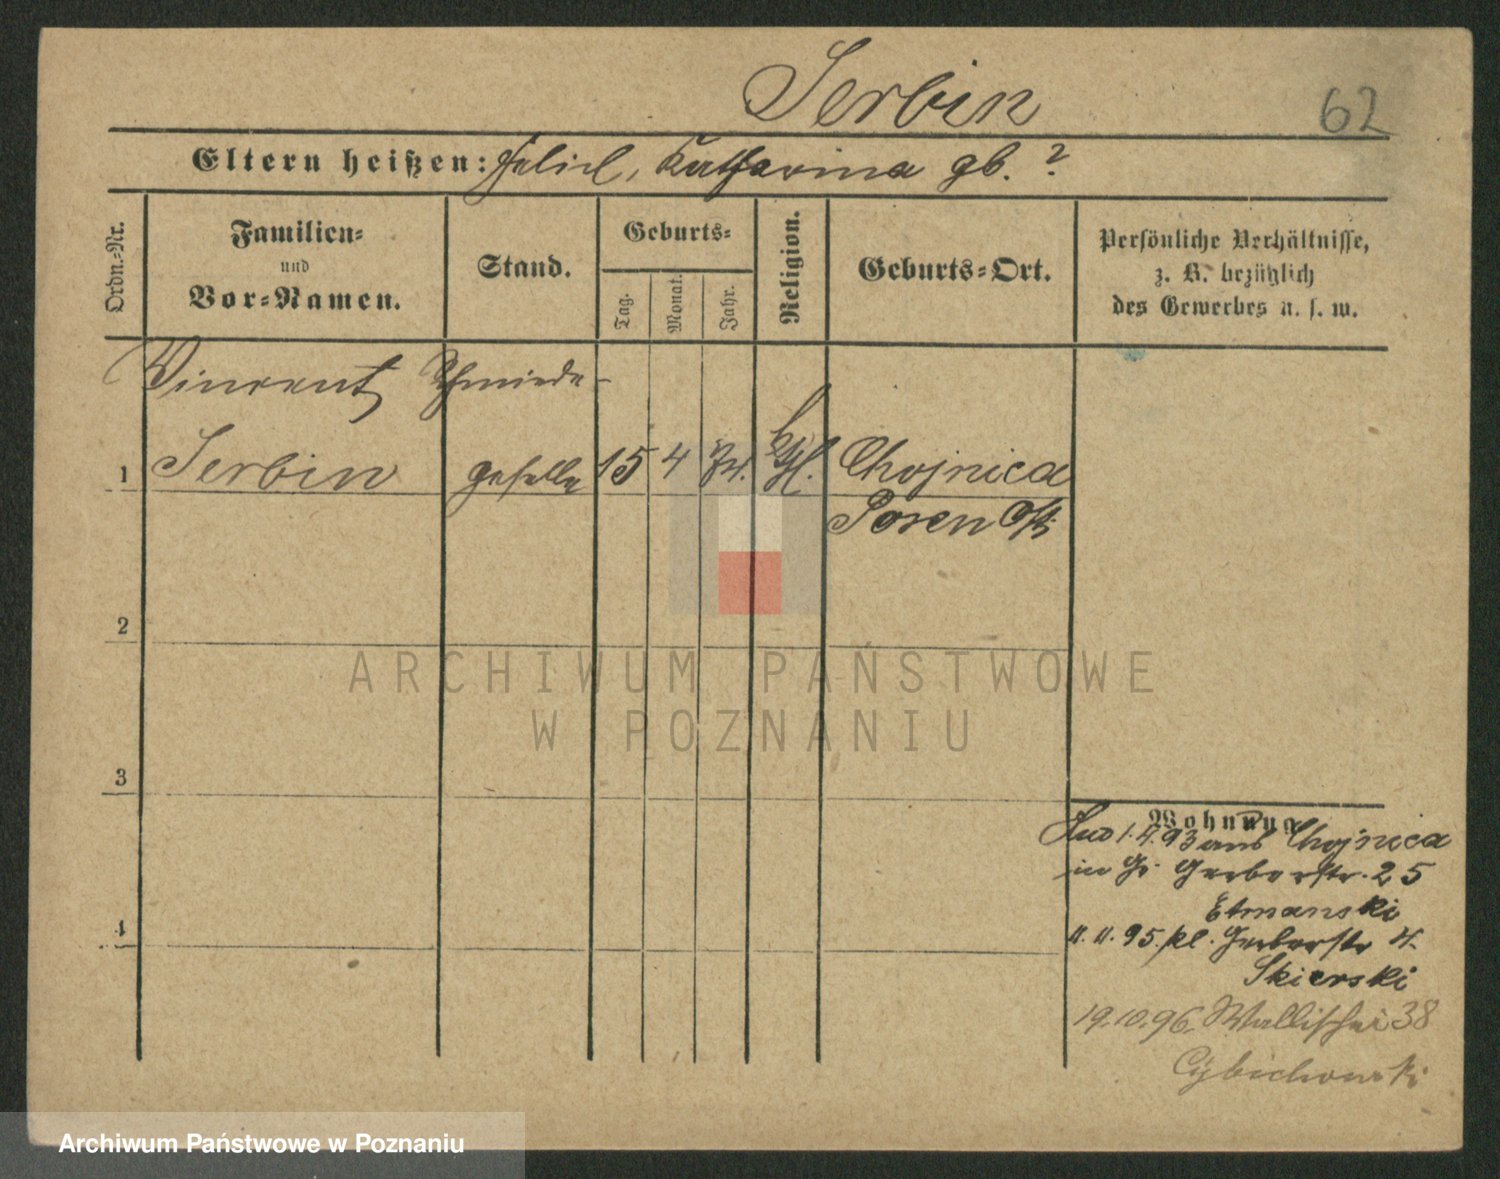 Serbin
62
Eltern heißen: Felicl, Katharina gb. ?
Ordn.-Nr.
Familien-
und
Vor-Namen.
Stand.
Geburts-
Tag.
Monat.
Jahr.
Religion.
Geburts-Ort.
Persönliche Verhältnisse,
z. B. bezüglich
des Gewerbes u. s. w.
Vincent Schmiede-
1 Serbin geselle 15 4 74. kth. Chojnica
Posen Ost
2
3
4
Wohnung
1.4.93 aus Chojnica
in Gr. Gerberstr. 25
Etmanski
11.11.95. kl. Gerberstr 4.
Skierski
19.10.96. Wallischei 38
Cybichowski
ARCHIWUM PAŃSTWOWE
W POZNANIU
Archiwum Państwowe w Poznaniu